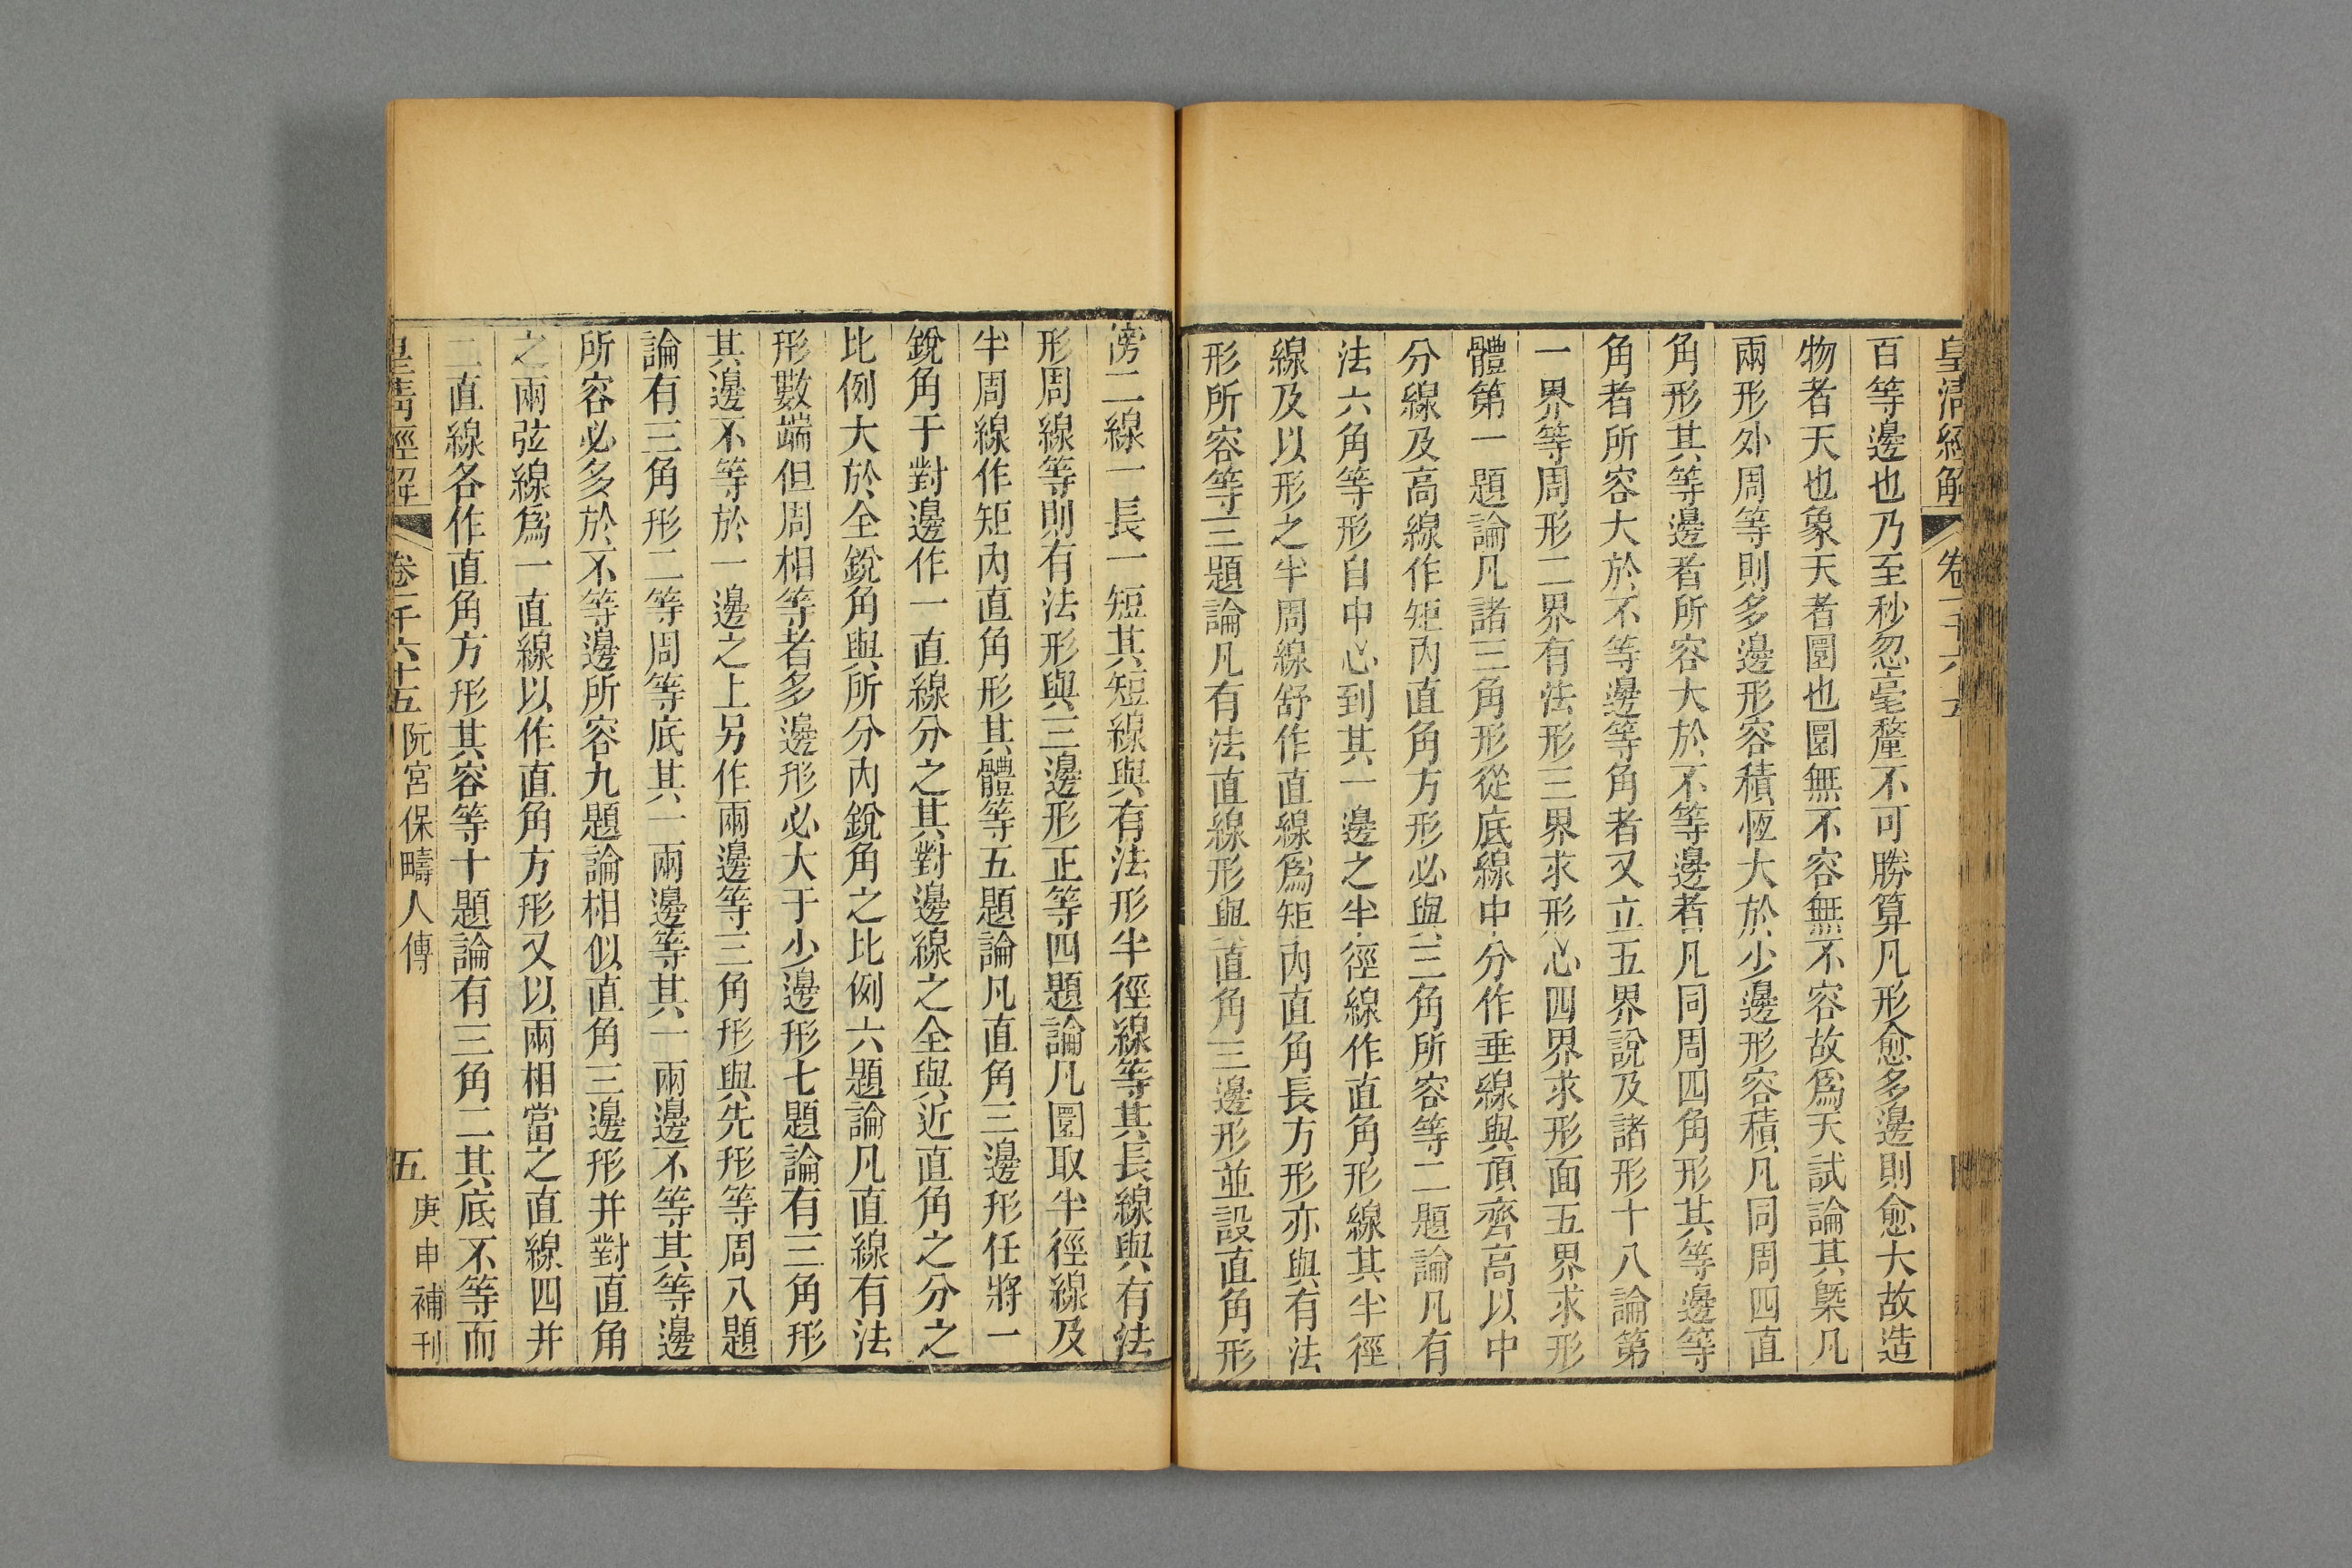 皇清經解 卷一千六十五
百等邊也乃至秒忽毫釐不可勝算凡形愈多邊則愈大故造
物者天也象天者圜也圜無不容無不容故爲天試論其槩凡
兩形外周等則多邊形容積恆大於少邊形容積凡同周四直
角形其等邊者所容大於不等邊者凡同周四角形其等邊等
角者所容大於不等邊等角者又立五界說及諸形十八論第
一界等周形二界有法形三界求形心四界求形面五界求形
體第一題論凡諸三角形從底線中分作垂線與頂齊高以中
分線及高線作矩內直角方形必與三角所容等二題論凡有
法六角等形自中心到其一邊之半徑線作直角形線其半徑
線及以形之半周線舒作直線爲矩內直角長方形亦與有法
形所容等三題論凡有法直線形與直角三邊形並設直角形
傍二線一長一短其短線與有法形半徑線等其長線與有法
形周線等則有法形與三邊形正等四題論凡圜取半徑線及
半周線作矩內直角形其體等五題論凡直角三邊形任將一
銳角于對邊作一直線分之其對邊線之全與近直角之分之
比例大於全銳角與所分內銳角之比例六題論凡直線有法
形數端但周相等者多邊形必大于少邊形七題論有三角形
其邊不等於一邊之上另作兩邊等三角形與先形等周八題
論有三角形二等周等底其一兩邊等其一兩邊不等其等邊
所容必多於不等邊所容九題論相似直角三邊形并對直角
之兩弦線爲一直線以作直角方形又以兩相當之直線四并
二直線各作直角方形其容等十題論有三角二其底不等而
皇清經解 卷一千六十五 阮宮保疇人傳 五 庚申補刊